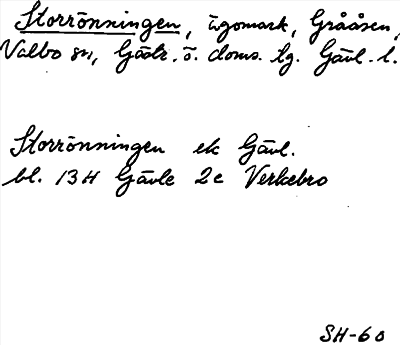 Storrönningen, ägomark, Grååsen,
Valbo sn, Gästr. ö. doms. tg. Gävl. l.
Storrönningen ek Gävl.
bl. 13H Gävle 2c Verkebro
SH-60